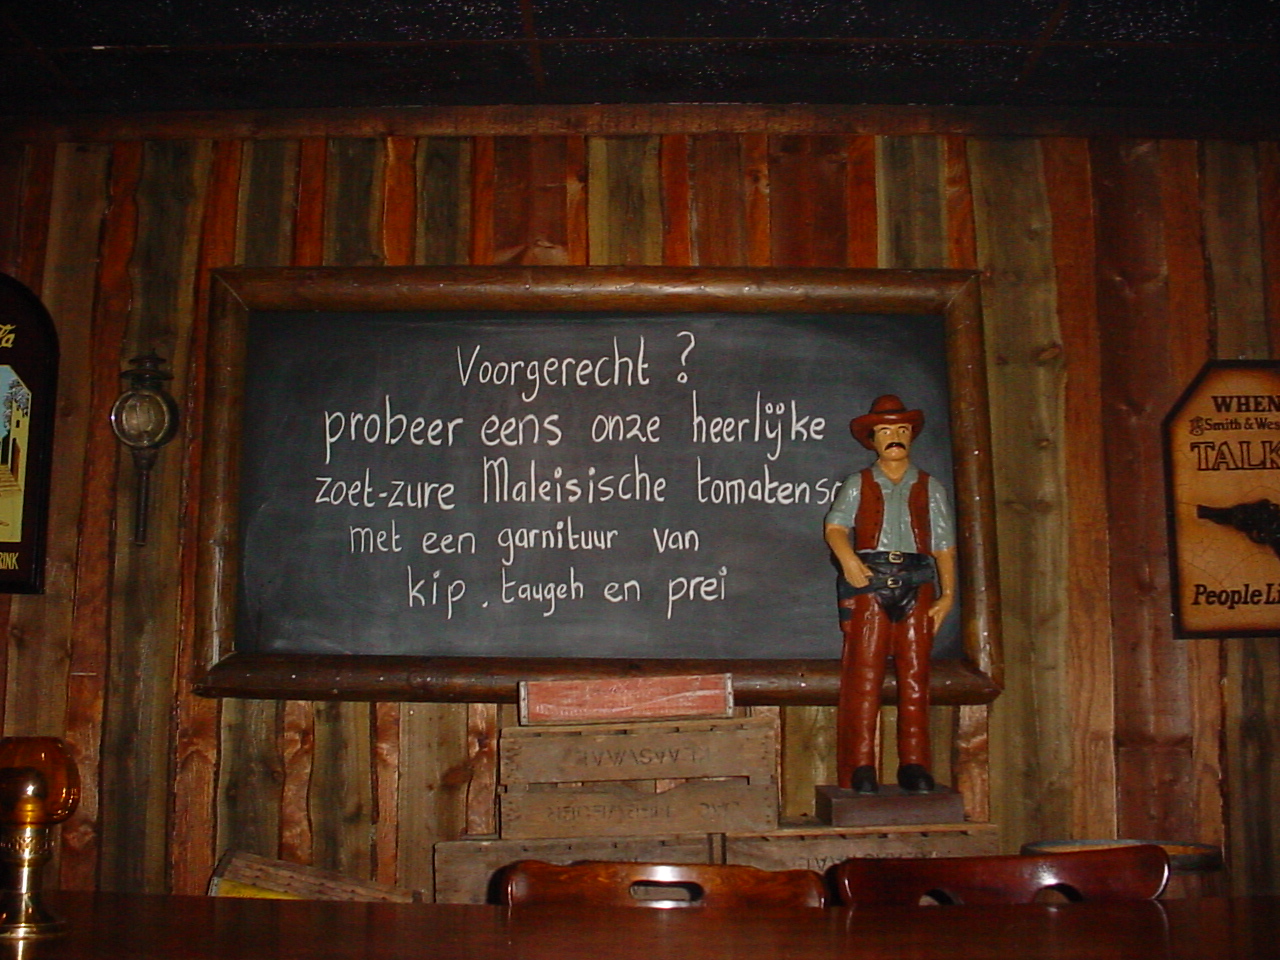 Voorgerecht ?
probeer eens onze heerlijke
zoet-zure Maleisische tomatenso
met een garnituur van
kip, taugeh en prei
WHEN
Smith & Wes
TALK
People Li
RINK